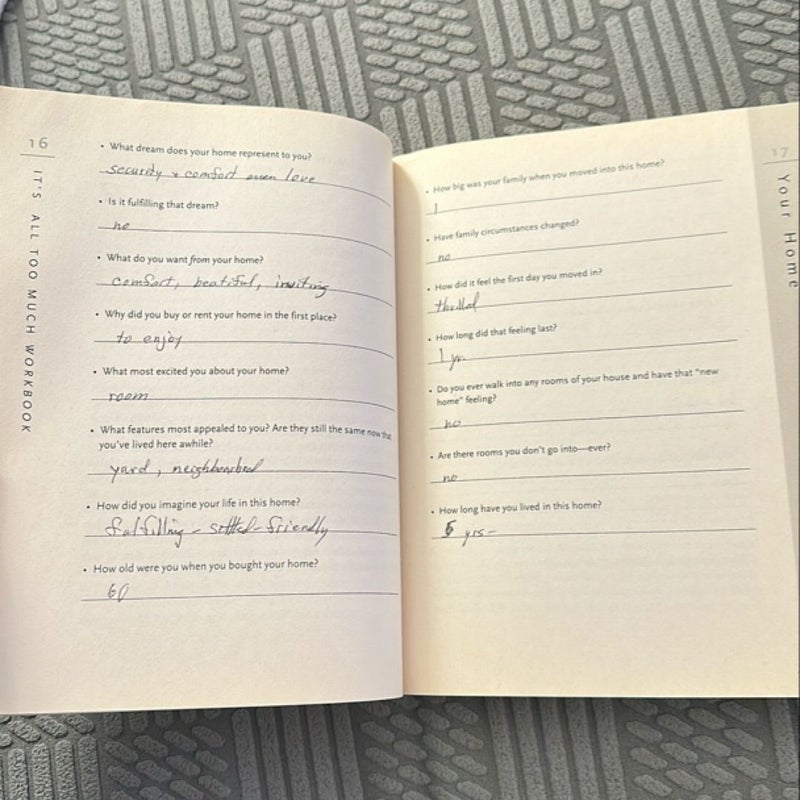 16
IT'S ALL TOO MUCH WORKBOOK
• What dream does your home represent to you?
security + comfort even love
• Is it fulfilling that dream?
no
• What do you want from your home?
comfort, beatiful, inviting
• Why did you buy or rent your home in the first place?
to enjoy
• What most excited you about your home?
room
• What features most appealed to you? Are they still the same now that
you've lived here awhile?
yard, neighborhood
• How did you imagine your life in this home?
fulfilling - settled - friendly
• How old were you when you bought your home?
60
17
Your Home
• How big was your family when you moved into this home?
1
• Have family circumstances changed?
no
• How did it feel the first day you moved in?
thrilled
• How long did that feeling last?
1 yr.
• Do you ever walk into any rooms of your house and have that "new
home" feeling?
no
• Are there rooms you don't go into—ever?
no
• How long have you lived in this home?
5 yrs-